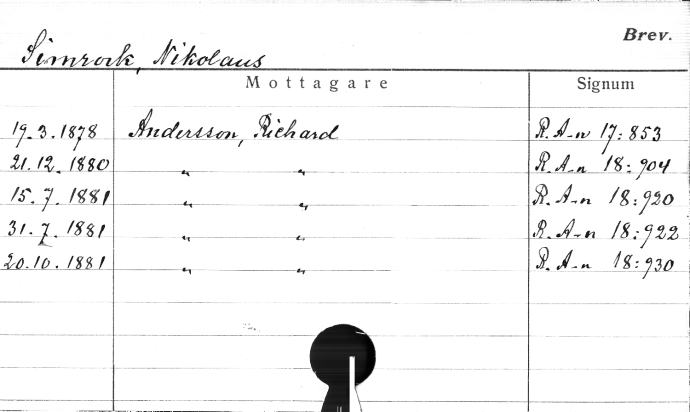 Brev.
Simrock, Nikolaus
Mottagare Signum
19.3.1878 Andersson, Richard R. A-n 17:853
21.12.1880 " " R. A-n 18:904
15.7.1881 " " R. A-n 18:920
31.7.1881 " " R. A-n 18:922
20.10.1881 " " R. A-n 18:930